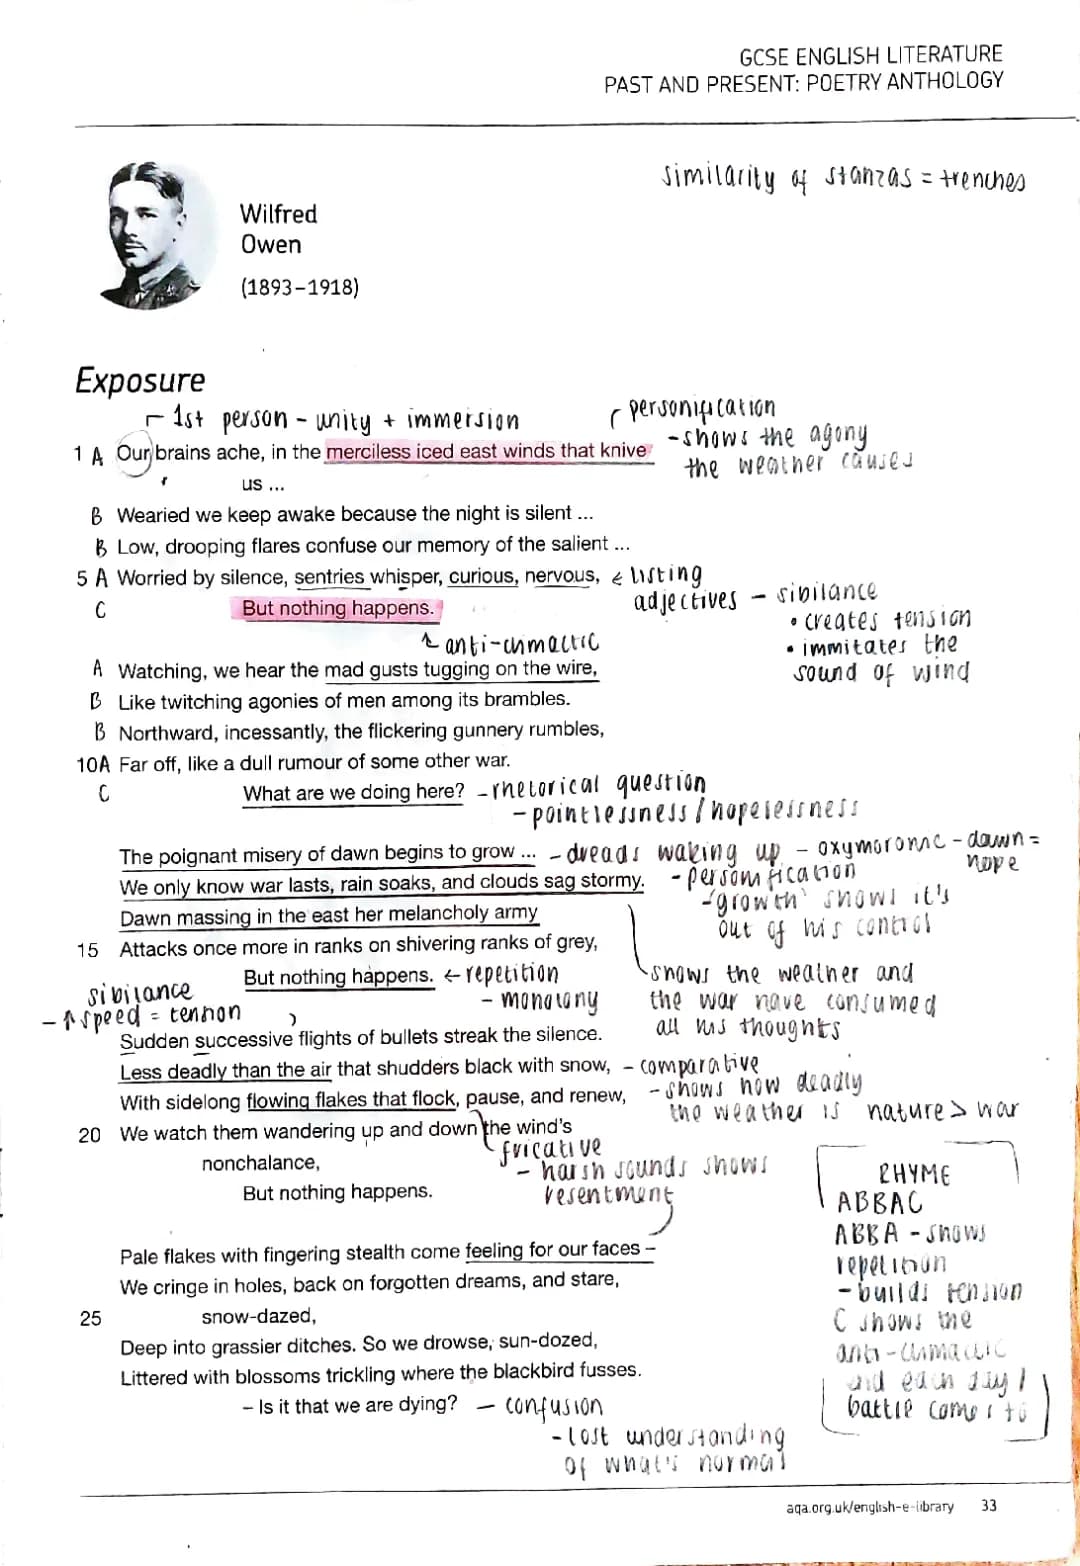 GCSE ENGLISH LITERATURE
PAST AND PRESENT: POETRY ANTHOLOGY
similarity of stanzas = trenches
Wilfred
Owen
(1893–1918)
Exposure
1st person - unity + immersion
personification
- shows the agony
the weather causes
1 A Our brains ache, in the merciless iced east winds that knive
us ...
B Wearied we keep awake because the night is silent ...
B Low, drooping flares confuse our memory of the salient ...
5 A Worried by silence, sentries whisper, curious, nervous, ← listing
adjectives - sibilance
• creates tension
• immitates the
sound of wind
C But nothing happens.
↑ anti-climactic
A Watching, we hear the mad gusts tugging on the wire,
B Like twitching agonies of men among its brambles.
B Northward, incessantly, the flickering gunnery rumbles,
10A Far off, like a dull rumour of some other war.
C What are we doing here? - rhetorical question
- pointlessness / hopelessness
The poignant misery of dawn begins to grow ... - dreads waking up - oxymoronic - dawn =
hope
We only know war lasts, rain soaks, and clouds sag stormy. - personification
- 'growth' shows it's
out of his control
Dawn massing in the east her melancholy army
15 Attacks once more in ranks on shivering ranks of grey,
But nothing happens. ← repetition
- monotony
shows the weather and
the war have consumed
all his thoughts
sibilance
- ↑ speed = tension
Sudden successive flights of bullets streak the silence.
Less deadly than the air that shudders black with snow, - comparative
- shows how deadly
the weather is nature > war
With sidelong flowing flakes that flock, pause, and renew,
20 We watch them wandering up and down the wind's
nonchalance,
fricative
- harsh sounds shows
resentment
But nothing happens.
Pale flakes with fingering stealth come feeling for our faces –
We cringe in holes, back on forgotten dreams, and stare,
25 snow-dazed,
Deep into grassier ditches. So we drowse, sun-dozed,
Littered with blossoms trickling where the blackbird fusses.
– Is it that we are dying? - confusion
- lost understanding
of what's normal
RHYME
ABBAC
ABBA - shows
repetition
- builds tension
C shows the
anti-climactic
end each day /
battle comes to
aqa.org.uk/english-e-library 33